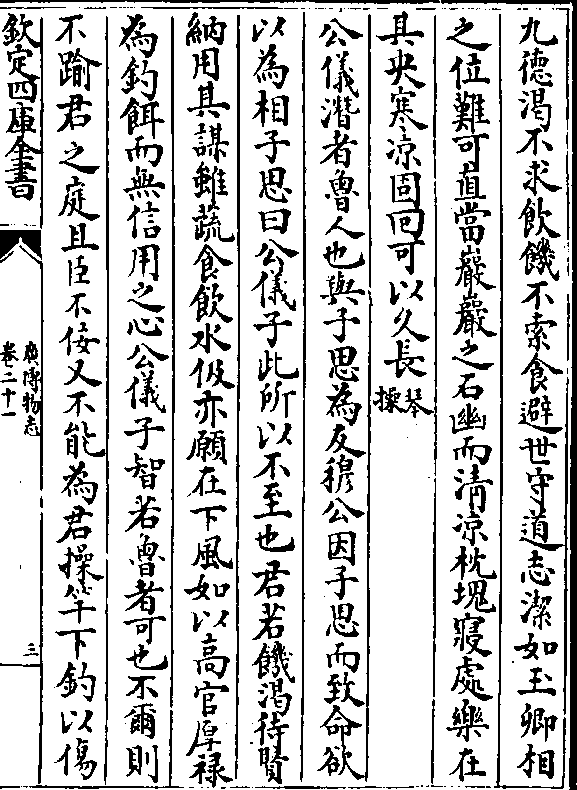 九徳渴不求飲饑不索食避世守道志潔如玉卿相
之位難可直當巖巖之石幽而清涼枕塊寢處樂在
其央寒涼固回可以久長琴操
公儀潛者魯人也與子思為友穆公因子思而致命欲
以為相子思曰公儀子此所以不至也君若饑渴待賢
納用其謀雖蔬食飲水伋亦願在下風如以高官厚禄
為釣餌而無信用之心公儀子智若魯者可也不爾則
不踰君之庭且臣不佞又不能為君操竿下釣以傷
欽定四庫全書
廣博物志
卷二十一
三